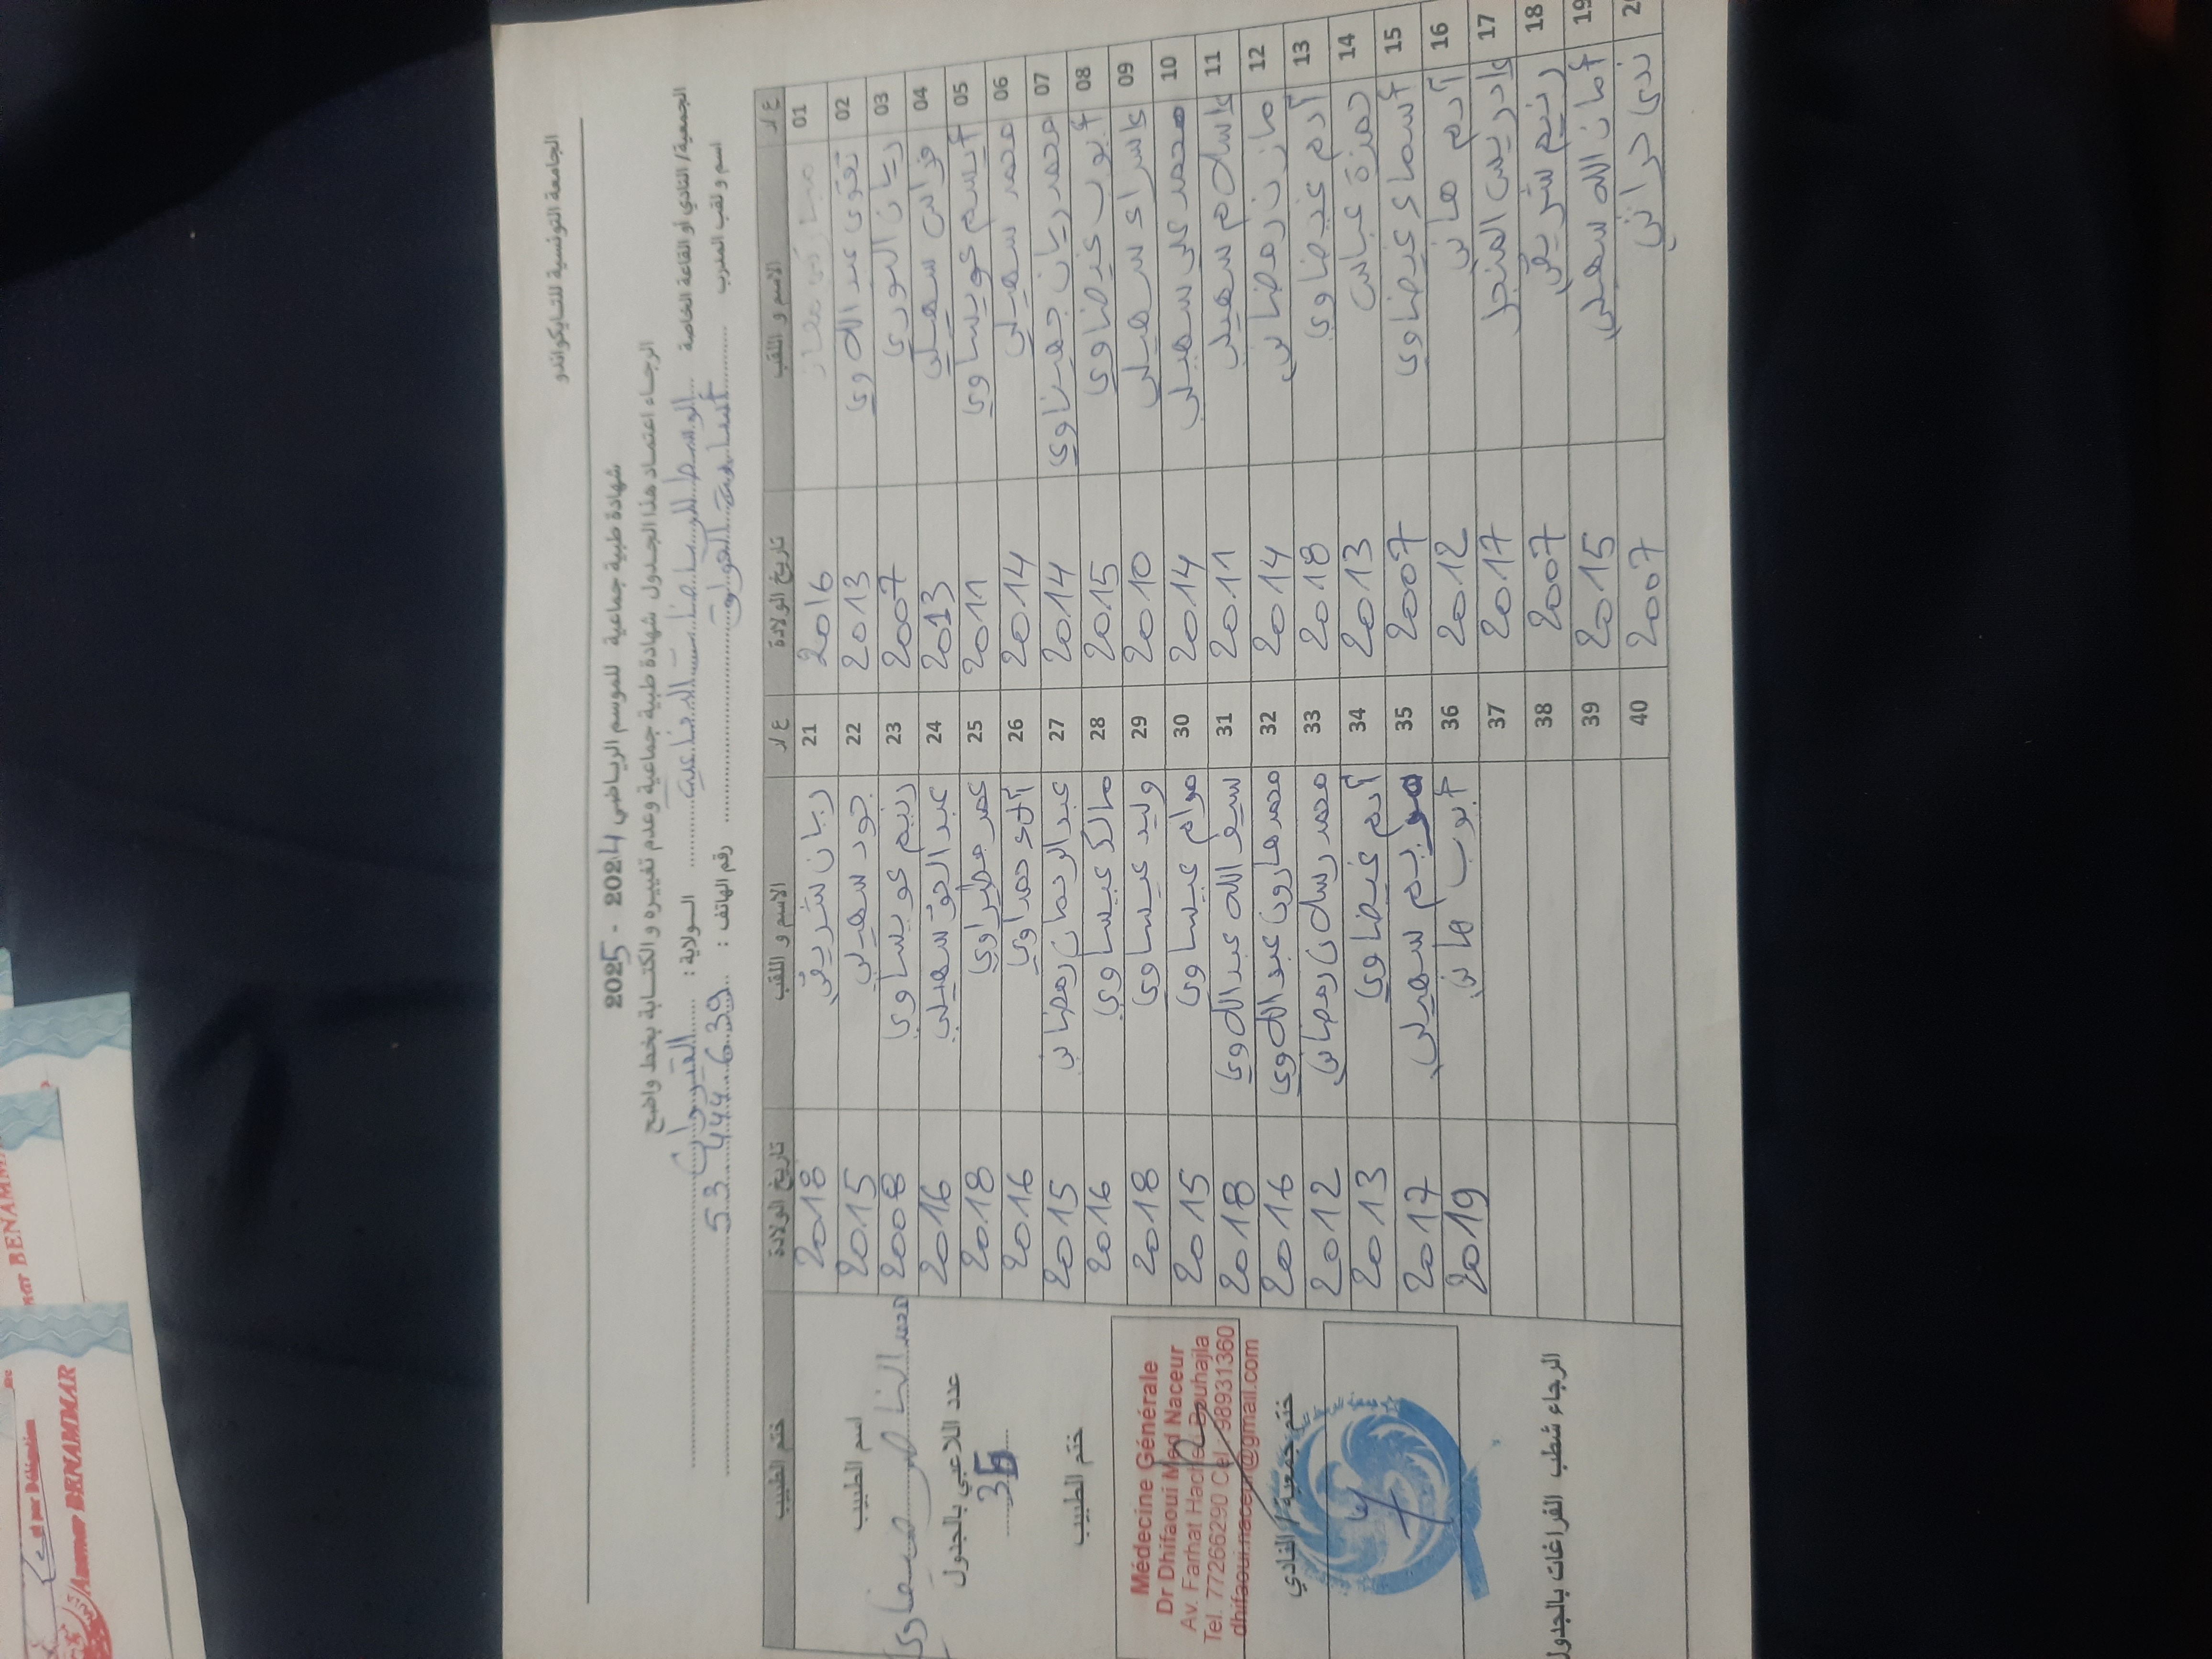 الجامعة التونسية للتايكواندو
شهادة طبية جماعية للموسم الرياضي 2024 - 2025
الرجاء اعتماد هذا الجدول شهادة طبية جماعية وعدم تغييره والكتابة بخط واضح
الجمعية/ النادي أو القاعة الخاصة الوسط للرياضات الدفاعية الولاية : القيروان
اسم و لقب المدرب أسامة رقم الهاتف : 53 444 639
ع/د الاسم و اللقب تاريخ الولادة ع/د الاسم و اللقب تاريخ الولادة ختم الطبيب
01 2016 21 ريان شريفي 2018
02 تقوى عبد اللاوي 2013 22 جود سهيلي 2015
03 ريان النوري 2007 23 رنيم عويساوي 2008
04 فراس سهيلي 2013 24 عبد الحق سهيلي 2016
05 أيسم عويساوي 2011 25 عمر مطراوي 2018
06 محمد سهيلي 2014 26 آلاء حمداوي 2016
07 محمد ريان جهيناوي 2014 27 عبد الرحمان رمضاني 2015
08 أيوب غيضاوي 2015 28 مالك عيساوي 2016
09 إسراء سهيلي 2010 29 وليد عيساوي 2018
10 محمد علي سهيلي 2014 30 مرام عيساوي 2015
11 إسلام سهيلي 2011 31 سيف الله عبد اللاوي 2018
12 مازن رمضاني 2014 32 محمد هارون عبد اللاوي 2016
13 آدم غيضاوي 2018 33 محمد رسلان رمضاني 2012
14 حمزة عباس 2013 34 آدم غيضاوي 2013
15 أسماء غيضاوي 2007 35 مريم سهيلي 2017
16 آدم هاني 2012 36 أيوب هاني 2019
17 إدريس المنجل 2017 37
18 رنيم شريفي 2007 38
19 أمان الله سهيلي 2015 39
20 ندى حراثي 2007 40
اسم الطبيب
محمد الناصر ضيفاوي
عدد اللاعبي بالجدول
36
ختم الطبيب
Médecine Générale
Dr Dhifaoui Med Naceur
Av. Farhat Hached Bouhajla
Tel. 77266290 Cel. 98931360
dhifaoui.naceur@gmail.com
ختم جمعية / النادي
الرجاء شطب الفراغات بالجدول
et par Délégation
Anamar BENAMMAR
BENAMMAR